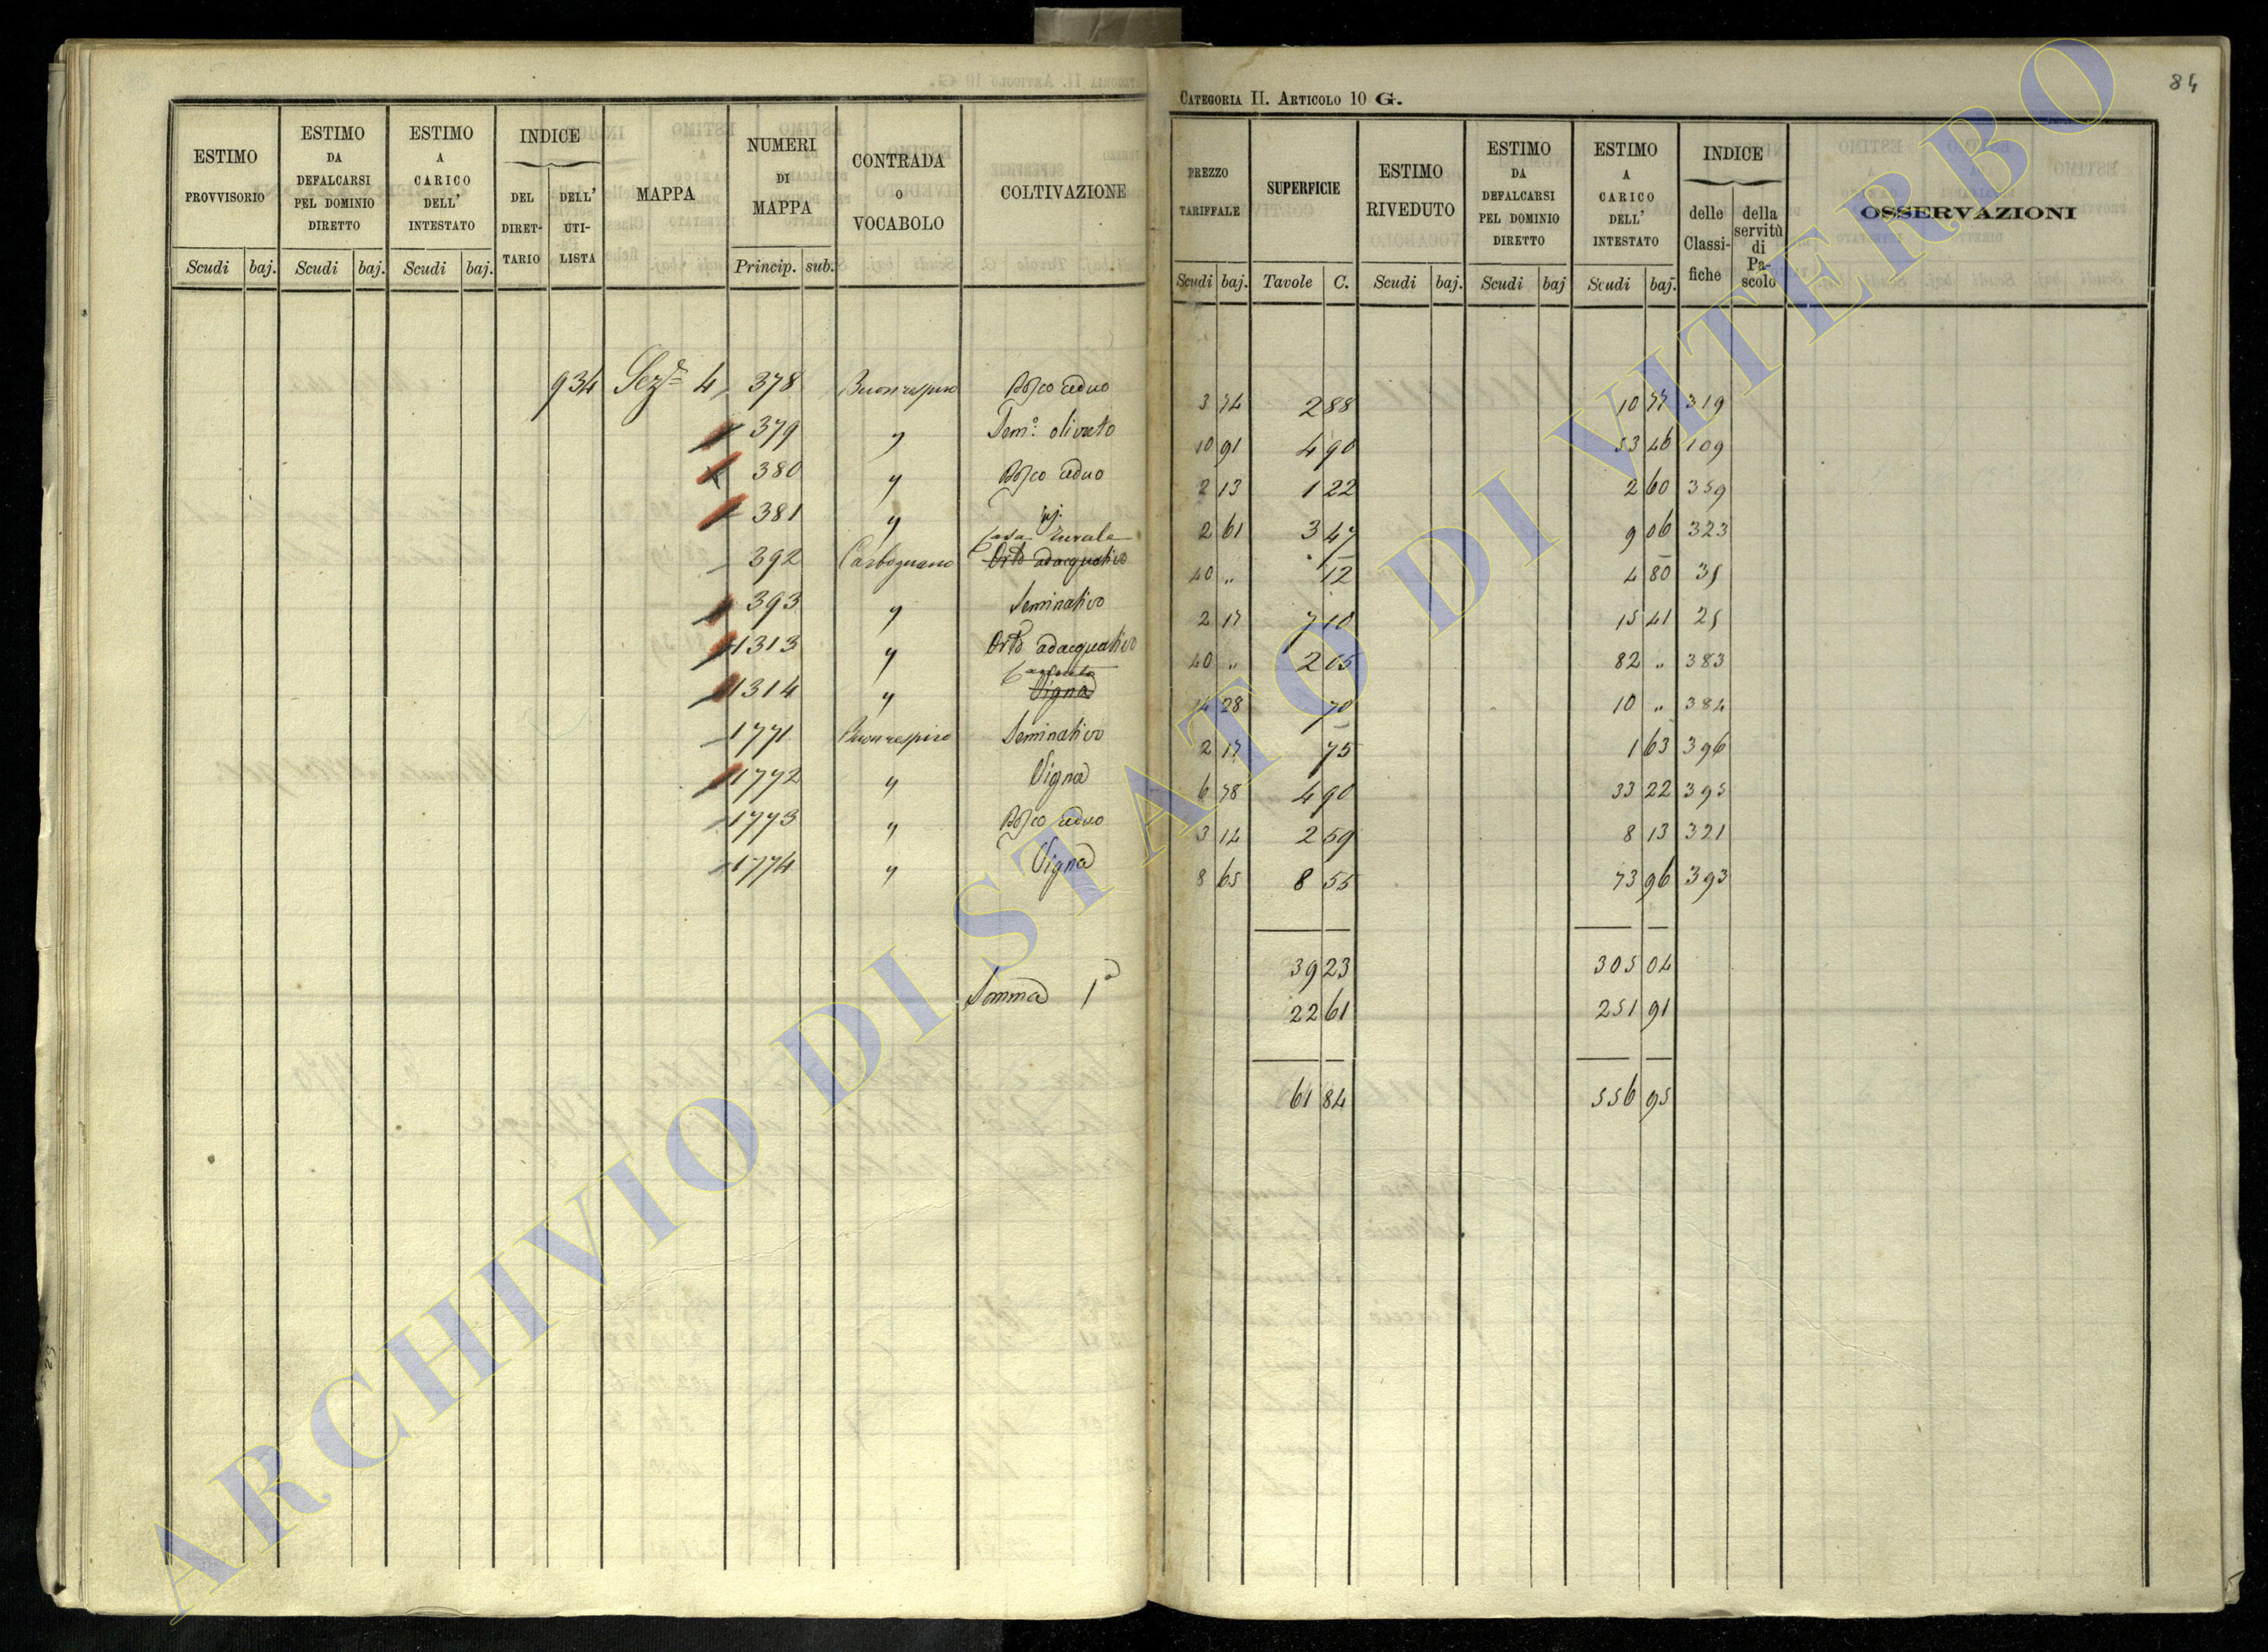 84
CATEGORIA II. ARTICOLO 10 G.
ESTIMO PROVVISORIO
ESTIMO DA DEFALCARSI PEL DOMINIO DIRETTO
ESTIMO A CARICO DELL' INTESTATO
INDICE
DEL DIRET-TARIO
DELL' UTI-LISTA
MAPPA
NUMERI DI MAPPA
CONTRADA o VOCABOLO
COLTIVAZIONE
PREZZO TARIFFALE
SUPERFICIE
ESTIMO RIVEDUTO
ESTIMO DA DEFALCARSI PEL DOMINIO DIRETTO
ESTIMO A CARICO DELL' INTESTATO
INDICE
delle Classi-fiche
della servitù di Pa-scolo
OSSERVAZIONI
Scudi baj. Scudi baj. Scudi baj. Princip. sub. Scudi baj. Tavole C. Scudi baj. Scudi baj Scudi baj.
934 Sez.e 4 378 Buonrespiro Bosco ceduo 3 74 2 88 10 77 319
379 " Sem.o olivato 10 91 4 90 53 46 109
380 " Bosco ceduo 2 13 1 22 2 60 359
381 " 2 61 3 47 9 06 323
Casa rurale
392 Carbognano Orto adacquativo 40 " 12 4 80 35
393 " Seminativo 2 17 7 10 15 41 25
1313 " Orto adacquativo 40 " 2 05 82 " 383
1314 " Vigna 14 28 70 10 " 384
1771 Buonrespiro Seminativo 2 17 75 1 63 396
1772 " Vigna 6 78 4 90 33 22 395
1773 " Bosco ceduo 3 14 2 59 8 13 321
1774 " Vigna 8 65 8 55 73 96 393
39 23 305 04
Somma 1a 22 61 251 91
61 84 556 95
ARCHIVIO DI STATO DI VITERBO